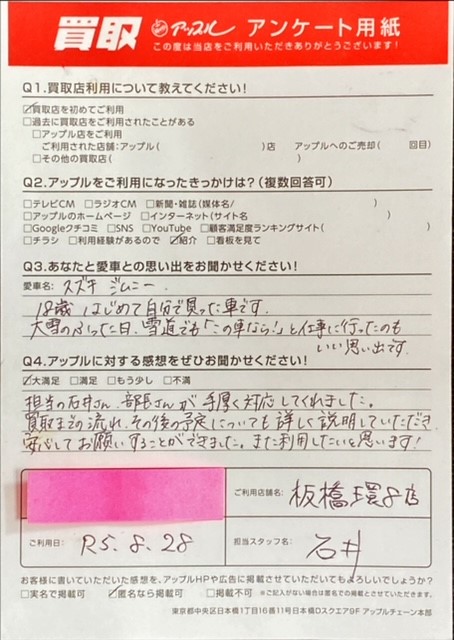 買取 アップル アンケート用紙
この度は当店をご利用いただきありがとうございます!
Q1.買取店利用について教えてください!
☑買取店を初めてご利用
□過去に買取店をご利用されたことがある
□アップル店をご利用
ご利用された店舗:アップル( )店 アップルへのご売却( 回目)
□その他の買取店( )
Q2.アップルをご利用になったきっかけは?(複数回答可)
□テレビCM □ラジオCM □新聞・雑誌(媒体名/ )
□アップルのホームページ □インターネット(サイト名 )
□Googleクチコミ □SNS □YouTube □顧客満足度ランキングサイト( )
□チラシ □利用経験があるので ☑紹介 □看板を見て
Q3.あなたと愛車との思い出をお聞かせください!
愛車名:スズキ ジムニー
18歳 はじめて自分で買った車です。
大雪のふった日、雪道でも「この車なら!」と仕事に行ったのも
いい思い出です。
Q4.アップルに対する感想をぜひお聞かせください!
☑大満足 □満足 □もう少し □不満
担当の石井さん、部長さんが手厚く対応してくれました。
買取までの流れ、その後の予定についても詳しく説明していただき
安心してお願いすることができました。また利用したいと思います!
ご利用店舗名: 板橋環8店
ご利用日: R5.8.28 担当スタッフ名: 石井
お客様に書いていただいた感想を、アップルHPや広告に掲載させていただいてもよろしいでしょうか?
□実名で掲載可 ☑匿名なら掲載可 □掲載不可 ※ご記入がない場合は匿名での掲載とさせていただきます。
東京都中央区日本橋1丁目16番11号日本橋Dスクエア9F アップルチェーン本部